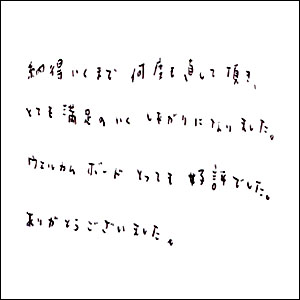 納得いくまで 何度も直して頂き、
とても満足のいく しあがりになりました。
ウェルカムボード とっても 好評でした。
ありがとうございました。